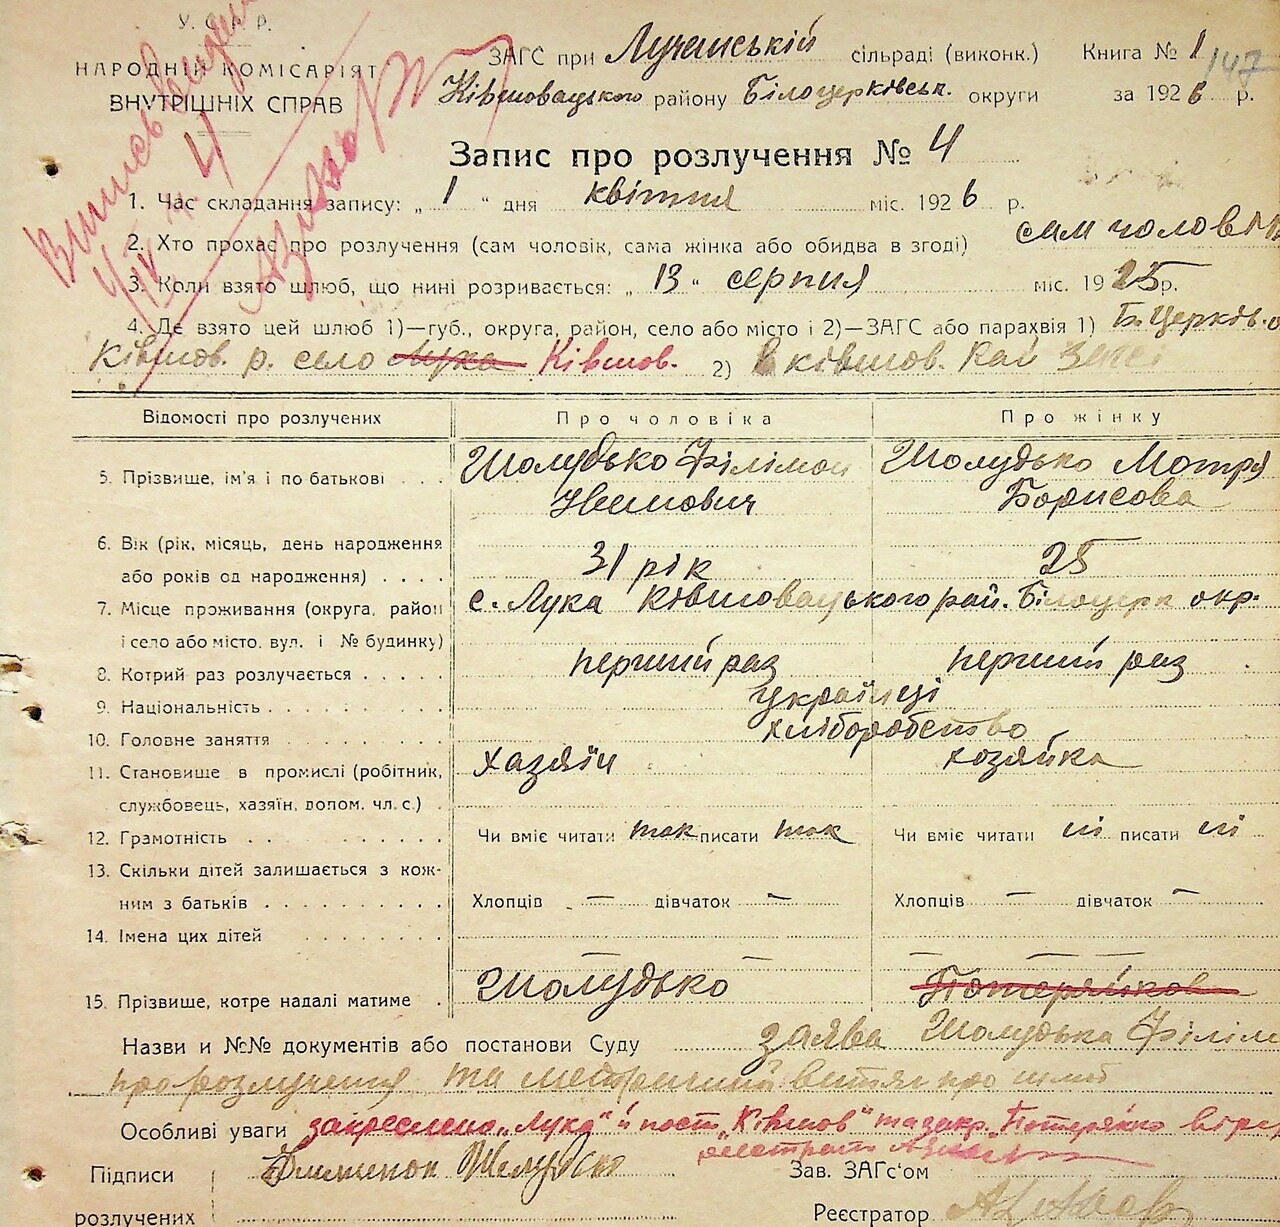 У. С. Р. Р.
НАРОДНІЙ КОМІСАРІЯТ
ВНУТРІШНІХ СПРАВ
ЗАГС при Лучанській сільраді (виконк.) Книга № 1
147
Ківшовацького району Білоцерківськ. округи за 1926 р.
Запис про розлучення № 4
1. Час складання запису: „1" дня квітня міс. 1926 р.
2. Хто прохає про розлучення (сам чоловік, сама жінка або обидва в згоді) сам чоловік
3. Коли взято шлюб, що нині розривається: „13" серпня міс. 1925 р.
4. Де взято цей шлюб 1)—губ., округа, район, село або місто і 2)—ЗАГС або парахвія 1) Б.Церків. о
Ківшов. р. село Лука Ківшов. 2) в ківшов. Рай Загсі
Відомості про розлучених Про чоловіка Про жінку
5. Прізвище, ім'я і по батькові Шолудько Філімон Шолудько Мотря
Борисова
6. Вік (рік, місяць, день народження
або років од народження) 31 рік 25
7. Місце проживання (округа, район с. Лука Ківшовацького рай. Білоцерк окр.
і село або місто, вул. і № будинку)
8. Котрий раз розлучається перший раз перший раз
9. Національність українці
10. Головне заняття хліборобство
11. Становище в промислі (робітник, хазяїн хозяйка
службовець, хазяїн, допом. чл. с.)
12. Грамотність Чи вміє читати так писати так Чи вміє читати ні писати ні
13. Скільки дітей залишається з кож-
ним з батьків Хлопців — дівчаток — Хлопців — дівчаток —
14. Імена цих дітей — — — —
15. Прізвище, котре надалі матиме Шолудько
Назви и №№ документів або постанови Суду заява Шолудька Філім
про розлучення та метричний витяг про шлюб
Особливі уваги закреслено „Лука" й пост „Ківшов" та закр.
Підписи Зав. ЗАГс'ом
розлучених Реєстратор